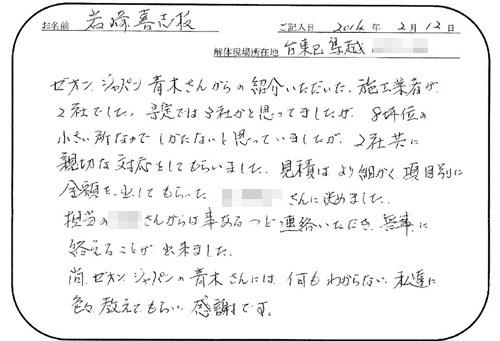 お名前 岩崎喜志枝 ご記入日 2014年 2月 12日
解体現場所在地 台東区鳥越
ゼオン ジャパン 青木さんからの紹介いただいた、施工業者が
2社でした。予定では3社かと思ってましたが、8坪位の
小さい所なので しかたないと思っていましたが、2社共に
親切な対応をしてもらいました。見積は より細かく、項目別に
金額を出してもらった さんに決めました。
担当の さんからは事あるつど連絡いただき、無事に
終えることが出来ました。
尚、ゼオン ジャパンの青木さんには、何もわからない私達に
色々教えてもらい 感謝です。